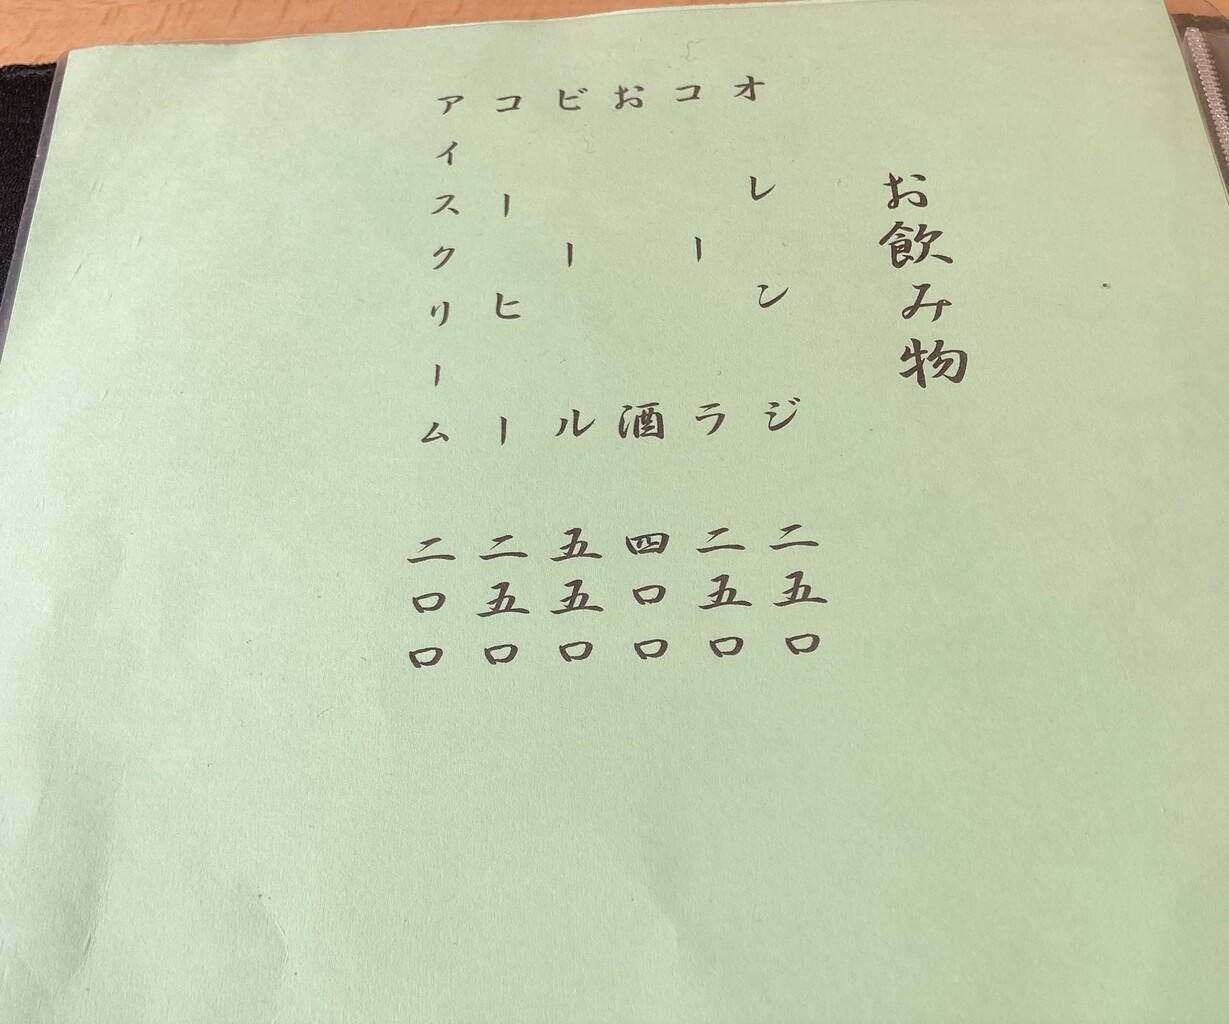 お飲み物
オレンジ 二五〇
コーラ 二五〇
お酒 四〇〇
ビール 五五〇
コーヒー 二五〇
アイスクリーム 二〇〇